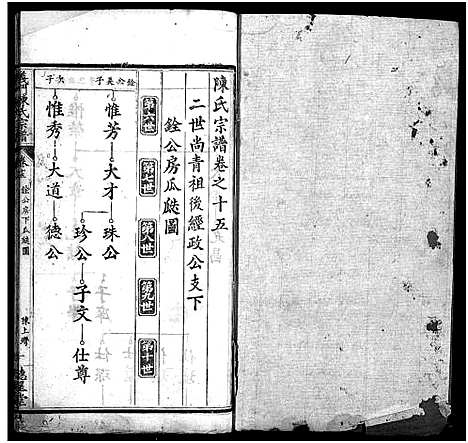 陳氏宗譜卷之十五
二世尚青祖後經政公支下
銓公房瓜瓞圖
第六世
第七世
第八世
第九世
第十世
銓公長子
惟芳
大才
珠公
珍公
子文
仕尊
次子
惟秀
大道
德公
陳氏宗譜
銓公房下瓜瓞圖
陳上